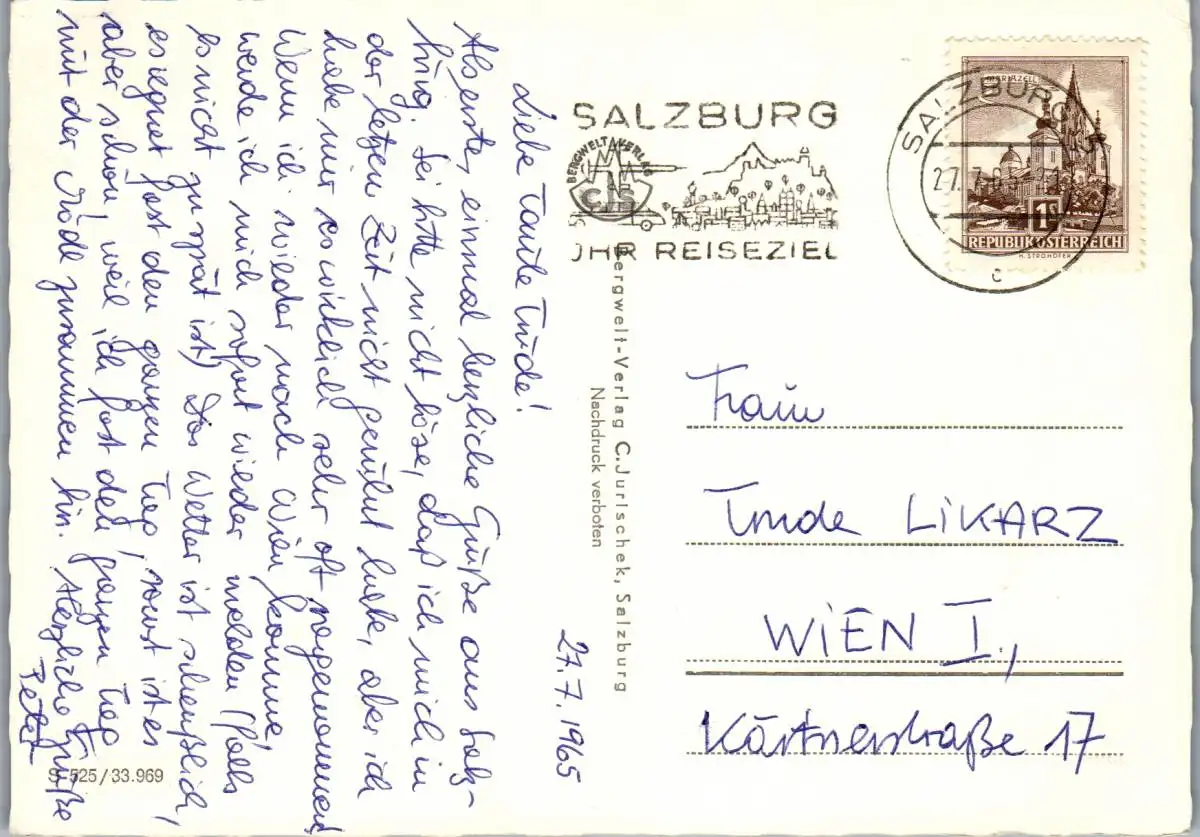 27.7.1965
Liebe Tante Trude!
Als erstes einmal herzliche Grüße aus Salz-
burg. Sei bitte nicht böse, daß ich mich in
der letzen Zeit nicht gerührt habe, aber ich
habe mir es wirklich sehr oft vorgenommen.
Wenn ich wieder nach Wien komme,
werde ich mich sofort wieder melden (falls
es nicht zu spät ist) Das Wetter ist scheußlich,
es regnet fast den ganzen Tag, sonst ist es
aber schön, weil ich fast den ganzen Tag
mit der Mädi zusammen bin. Herzliche Grüße
Peter
S 525/33.969
Bergwelt-Verlag C. Jurischek, Salzburg
Nachdruck verboten
SALZBURG
BERGWELT VERLAG
CJS
JHR REISEZIEL
SALZBURG
27.7.
c
MARIAZELL
1S
REPUBLIK ÖSTERREICH
H. STROHOFER
Frau
Trude LIKARZ
WIEN I.,
Kärtnerstraße 17